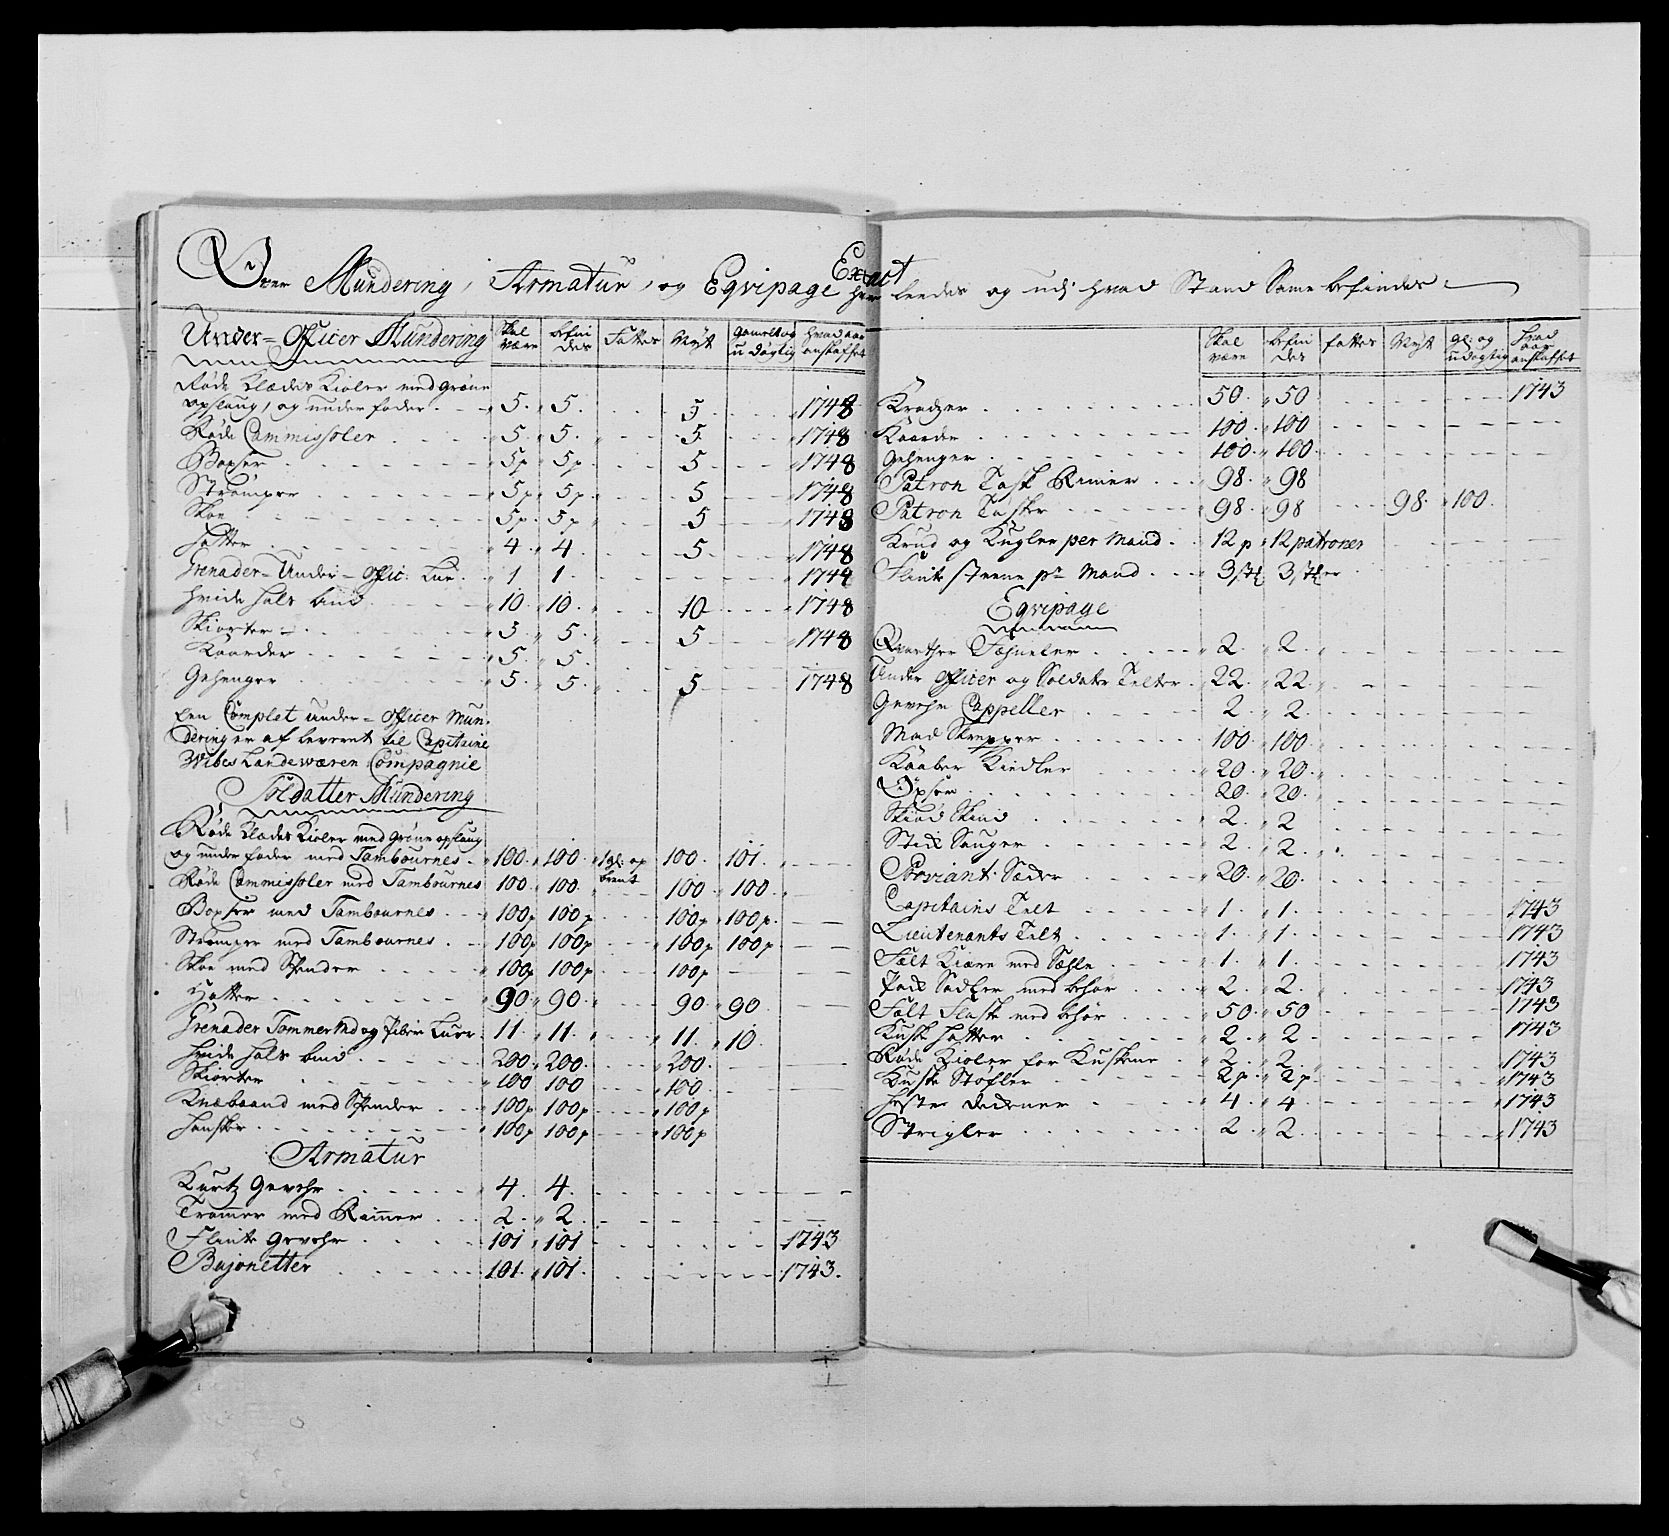 Extract
Over Mundering, Armatur, og Eqvipage huorledes og udj hvad Stand Same befindes
Under-Officer Mundering | Skal være | befindes | Fattes | Nÿt | gammelt og udÿgtig | hvad aar anskaffet
Røde Klædes Kioler med grøne
opslaug, og under foder 5. 5. 5 1748
Røde Commissoler 5. 5. 5 1748
Boxser 5p 5p 5 1748
Strømper 5p 5p 5 1748
Skoe 5p 5p 5 1748
Hatter 4. 4. 5 1748
Grenader-Under-Offic: Lue 1 1. 1748
Hvide Hals bind 10. 10. 10 1748
Skiorter 5. 5. 5 1748
Kaarder 5. 5.
Gehenger 5. 5. 5 1748
Een Complet under-Officer Mun-
dering er af leveret til Capitaine
Wibes Landeværen Compagnie
Soldatter Mundering
Røde Klædes Kioler med Grøne opslaug
og under foder med Tambournes 100. 100. 1 gl: op brent 100. 101.
Røde Commissoler med Tambournes 100. 100. 100 100.
Boxser med Tambournes 100p 100p 100p 100p.
Strømper med Tambournes 100p 100p 100p 100p
Skoe med Spender 100p 100p 100p
Hatter 90. 90. 90. 90
Grenader Tommermd og Luer 11. 11. 11. 10.
Hvide Hals bind 200. 200. 200.
Skiorter 100 100 100
Knæbaand med Spender 100p 100p 100p
Handsker 100p 100p 100p
Armatur
Kurtz Gevehr 4. 4.
Trommer med Rimmer 2. 2.
Flint Gevehr 101 101 1743
Bajonetter 101. 101. 1743.
Skal være | befindes | fattes | Nÿt | gl: og udÿgtig | Hvad aar anskaffet
Kradzer 50. 50 1743
Kaarder 100. 100
Gehenger 100. 100
Patron Task Rimer 98. 98
Patron Tasker 98. 98 98. 100.
Krud og Kugler per Mand 12p 12 patroner
Flint steene pr Mand 3 stk 3 stker
Eqvipage
Qvarteer Fahneler 2. 2.
Under Officer og Soldater Telter 22. 22.
Gevehr Cappeller 2. 2.
Mad Skrepper 100. 100.
Kaaber Kiedler 20. 20.
Øxser 20. 20.
Skind 2. 2
Stich Sauger 2. 2.
Proviant Sæcker 20. 20.
Capitains Telt 1. 1. 1743
Lieutenants Telt 1. 1. 1743
Felt Kiære med Sæhle 1. 1. 1743
Pach Sadler med behør 2. 2. 1743
Felt Flask med behør 50. 50 1743
Kusk Hatter 2. 2 1743
Røde Kioler for Kuskene 2. 2. 1743
Kusk Støfler 2p 2p 1743
Heste Deckener 4. 4. 1743
Strigler 2 2. 1743